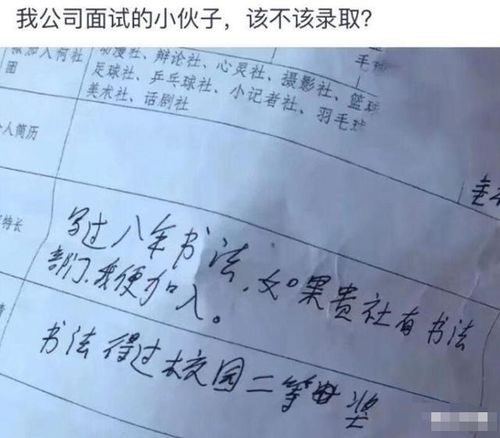 我公司面试的小伙子，该不该录取？
加入何社 动漫社、辩论社、心灵社、摄影社、篮球
团 足球社、乒乓球社、小记者社、羽毛球
美术社、话剧社
毛球
个人简历
特长 写过八年书法，如果贵社有书法
部门，我便加入。
书法得过校园二等奖